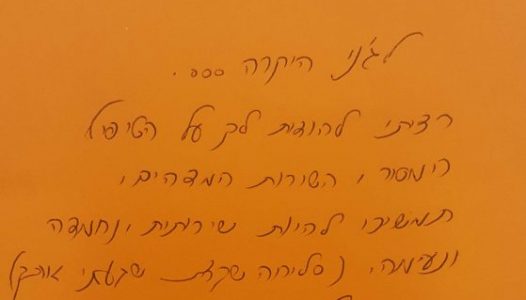 לג'ני היקרה ....
רציתי להודות לך על הטיפול
המסור, השירות המדהים,
תמשיכי להיות שירותית, נחמדה
ונעימה, (סליחה שקצת שיגעתי אותך)